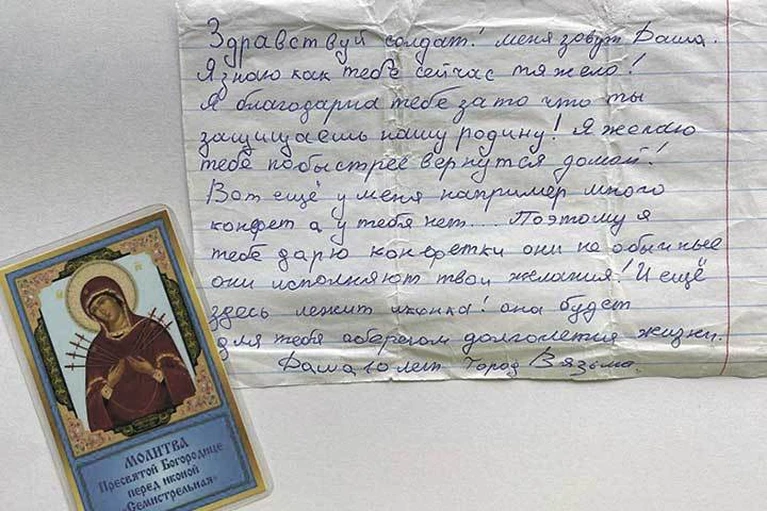 Здравствуй солдат! меня зовут Даша.
Я знаю как тебе сейчас тяжело!
Я благодарна тебе за то что ты
защищаешь нашу родину! Я желаю
тебе побыстрее вернутся домой!
Вот ещё у меня например много
конфет а у тебя нет... Поэтому я
тебе дарю конфетки они не обычные
они исполняют твои желания! И ещё
здесь лежит иконка! она будет
для тебя оберегом долголетия жизни.
Даша 10 лет город Вязьма.
МОЛИТВА
Пресвятой Богородице
перед иконой
«Семистрельная»